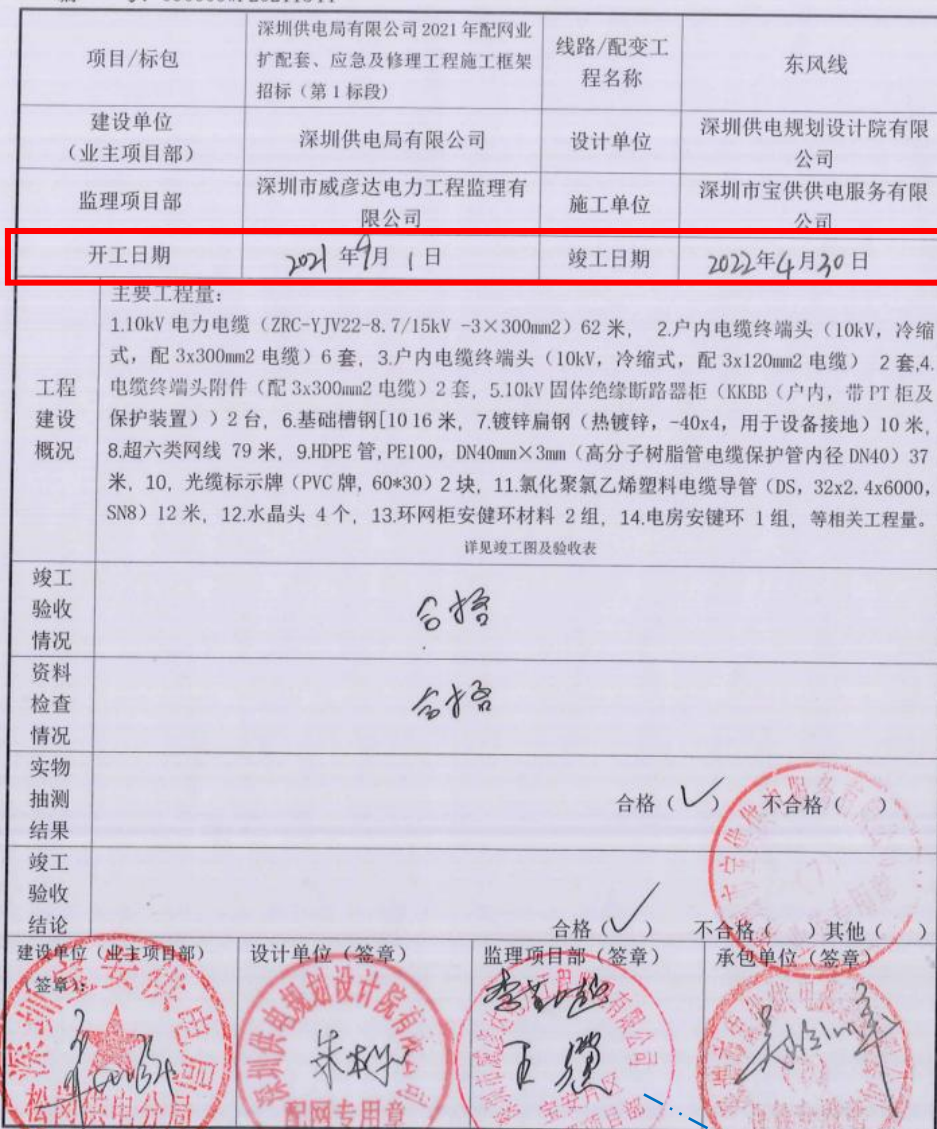 项目/标包
深圳供电局有限公司2021年配网业
扩配套、应急及修理工程施工框架
招标（第1标段）
线路/配变工
程名称
东风线
建设单位
（业主项目部）
深圳供电局有限公司
设计单位
深圳供电规划设计院有限
公司
监理项目部
深圳市威彦达电力工程监理有
限公司
施工单位
深圳市宝供供电服务有限
公司
开工日期
2021年9月1日
竣工日期
2022年4月30日
工程
建设
概况
主要工程量：
1.10kV 电力电缆（ZRC-YJV22-8.7/15kV -3×300mm2）62 米， 2.户内电缆终端头（10kV，冷缩
式，配 3x300mm2 电缆）6 套，3.户内电缆终端头（10kV，冷缩式，配 3x120mm2 电缆） 2 套,4.
电缆终端头附件（配 3x300mm2 电缆）2 套，5.10kV 固体绝缘断路器柜（KKBB（户内，带 PT 柜及
保护装置））2 台，6.基础槽钢[10 16 米，7.镀锌扁钢（热镀锌，-40x4，用于设备接地）10 米，
8.超六类网线 79 米，9.HDPE 管,PE100，DN40mm×3mm（高分子树脂管电缆保护管内径 DN40）37
米，10，光缆标示牌（PVC 牌，60*30）2 块，11.氯化聚氯乙烯塑料电缆导管（DS，32x2.4x6000，
SN8）12 米，12.水晶头 4 个，13.环网柜安健环材料 2 组，14.电房安键环 1 组，等相关工程量。
详见竣工图及验收表
竣工
验收
情况
合格
资料
检查
情况
合格
实物
抽测
结果
合格（✓） 不合格（ ）
竣工
验收
结论
合格（✓） 不合格（ ）其他（ ）
建设单位（业主项目部）
（签章）：
设计单位（签章）
监理项目部（签章）
承包单位（签章）
深圳宝安供电局
松岗供电分局
深圳供电规划设计院有限公司
配网专用章